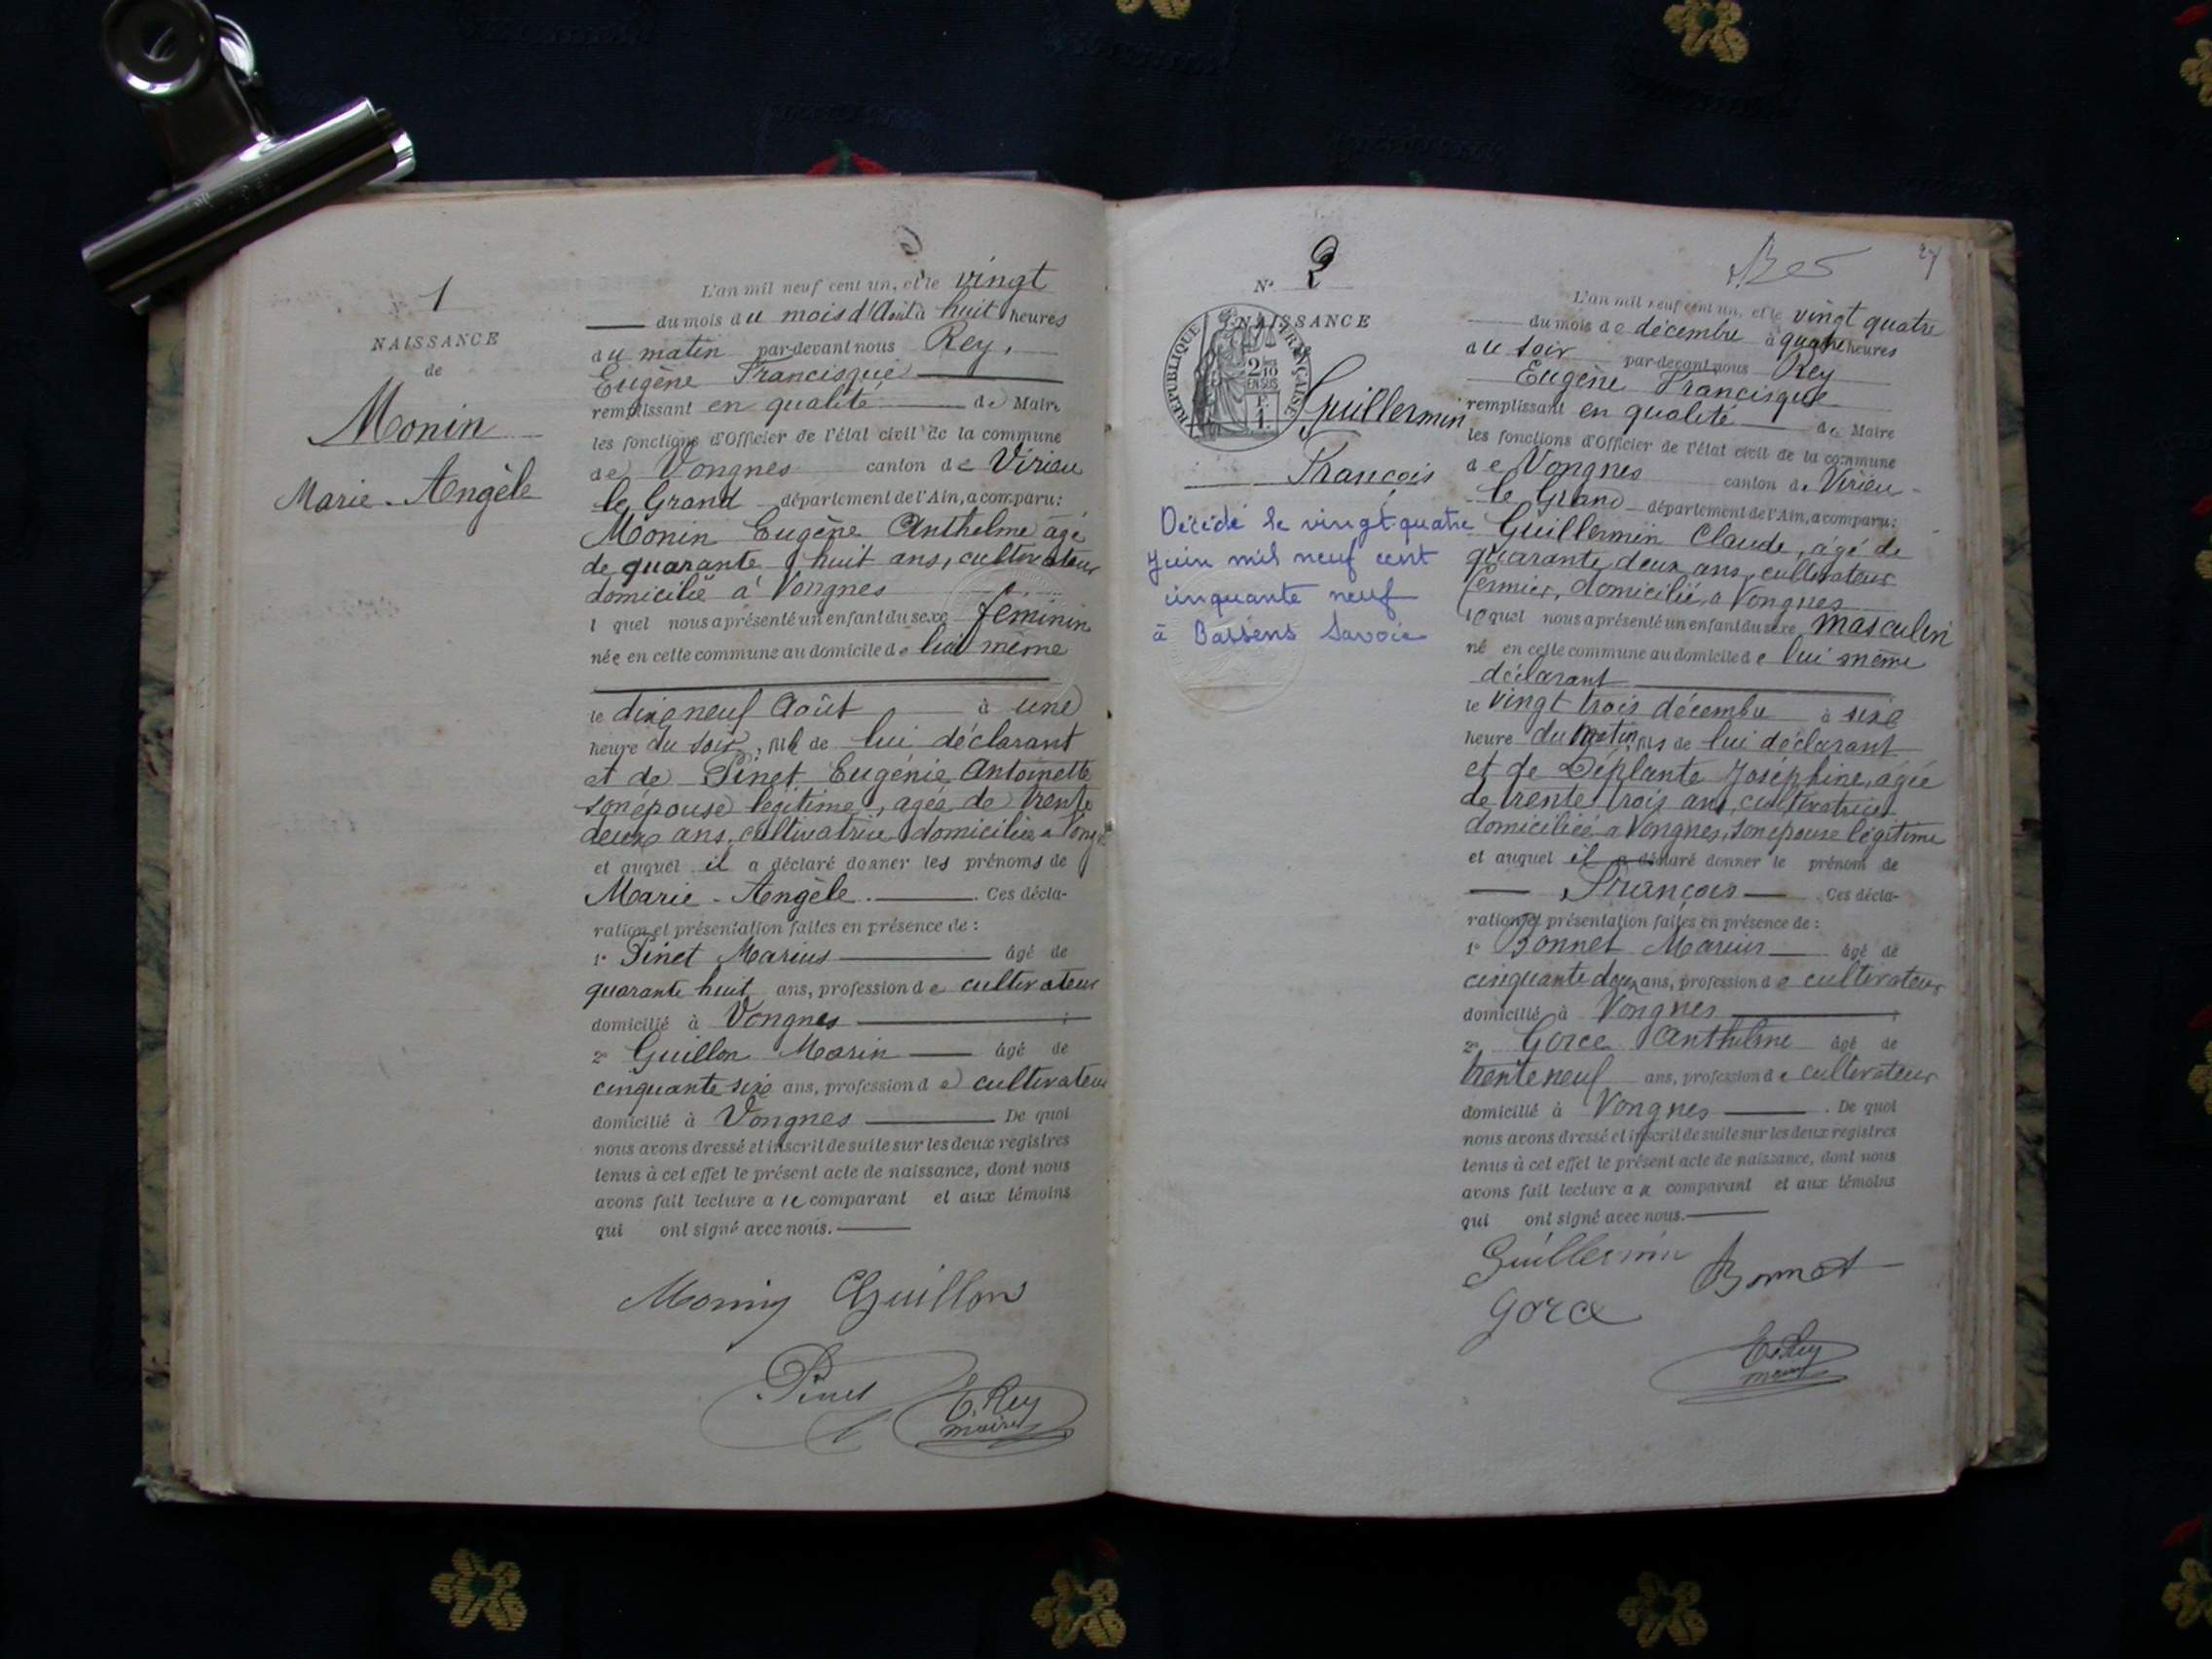 1
NAISSANCE
de
Monin
Marie-Angèle
L'an mil neuf cent un, et le vingt
du mois du mois d'Août à huit heures
du matin par-devant nous Rey,
Eugène Francisque
remplissant en qualité de Maire
les fonctions d'Officier de l'état civil de la commune
de Vongnes canton de Virieu
le Grand département de l'Ain, a comparu:
Monin Eugène Anthelme âgé
de quarante huit ans, cultivateur
domicilié à Vongnes
lquel nous a présenté un enfant du sexe féminin
née en cette commune au domicile de lui même
le dix neuf Août à une
heure du soir, fille de lui déclarant
et de Pinet Eugénie Antoinette
son épouse légitime, agée de trente
deux ans, cultivatrice domiciliée à
et auquel il a déclaré donner les prénoms de
Marie-Angèle. Ces décla-
ration et présentation faites en présence de:
1° Pinet Marius âgé de
quarante huit ans, profession de cultivateur
domicilié à Vongnes ;
2° Guillon Marin âgé de
cinquante six ans, profession de cultivateur
domicilié à Vongnes De quoi
nous avons dressé et inscrit de suite sur les deux registres
tenus à cet effet le présent acte de naissance, dont nous
avons fait lecture au comparant et aux témoins
qui ont signé avec nous.
Monin Guillon
Pinet E. Rey
maire
27
N° 2
NAISSANCE
RÉPUBLIQUE FRANÇAISE
2/10
EN SUS
Guillermin
François
Décédé le vingt-quatre
Juin mil neuf cent
cinquante neuf
à Bassens Savoie
L'an mil neuf cent un, et le vingt quatre
du mois de décembre à quatre heures
du soir par-devant nous Rey
Eugène Francisque
remplissant en qualité de Maire
les fonctions d'Officier de l'état civil de la commune
de Vongnes canton de Virieu-
le Grand département de l'Ain, a comparu:
Guillermin Claude, âgé de
quarante deux ans, cultivateur
fermier, domicilié à Vongnes
lequel nous a présenté un enfant du sexe masculin
né en cette commune au domicile de lui même
déclarant
le vingt trois décembre à six
heure du matin, fils de lui déclarant
et de Déplante Joséphine, agée
de trente trois ans, cultivatrice
domiciliée à Vongnes, son épouse légitime
et auquel il a déclaré donner le prénom de
François. Ces décla-
ration et présentation faites en présence de:
1° Bonnet Marius âgé de
cinquante deux ans, profession de cultivateur
domicilié à Vongnes ;
2° Gorce Anthelme âgé de
trente neuf ans, profession de cultivateur
domicilié à Vongnes. De quoi
nous avons dressé et inscrit de suite sur les deux registres
tenus à cet effet le présent acte de naissance, dont nous
avons fait lecture au comparant et aux témoins
qui ont signé avec nous.
Guillermin Bonnet
Gorce
E. Rey
maire